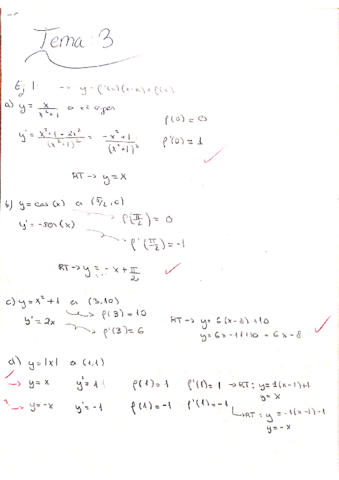 Tema: 3
Ej 1: → y = f'(x)(x-x)+f(x)
a) y = x/(x²+1) a x=
f(0) = 0
y' = (x²+1+2x²)/(x²+1)² = (-x²+1)/(x²+1)² f'(0) = 1
RT → y = x
b) y = cos(x) a
y' = -sen(x) f(π/2) = 0
f'(π/2) = -1
RT → y = -x + π/2
c) y = x²+1 a (3,10)
y' = 2x f(3) = 10
f'(3) = 6
RT → y = 6(x-3)+10
y = 6x-18+10 = 6x-8
d) y = |x| a (1,1)
→ y = x y' = 1 f(1) = 1 f'(1) = 1 → RT: y = 1(x-1)+1
y = x
→ y = -x y' = -1 f(1) = -1 f'(1) = -1
RT: y = -1(x-1)-1
y = -x